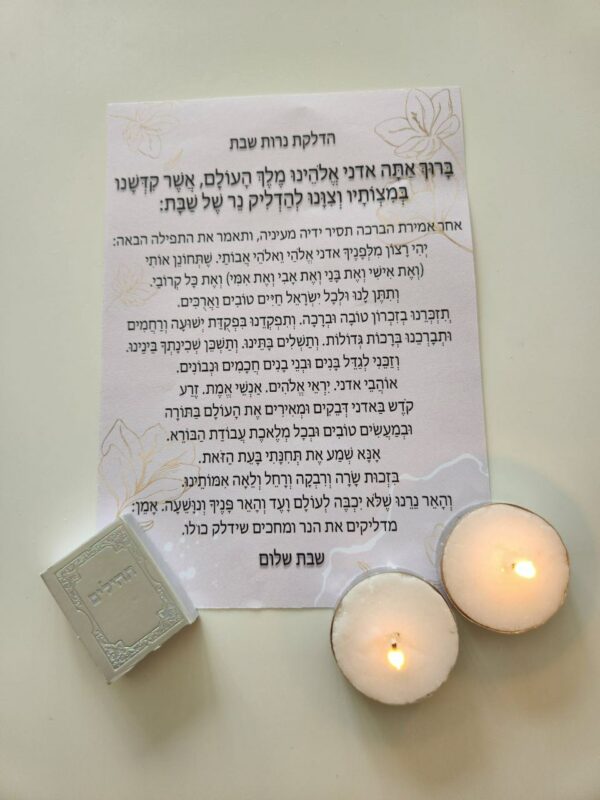 הדלקת נרות שבת
בָּרוּךְ אַתָּה אדני אֱלֹהֵינוּ מֶלֶךְ הָעוֹלָם, אֲשֶׁר קִדְּשָׁנוּ
בְּמִצְוֹתָיו וְצִוָּנוּ לְהַדְלִיק נֵר שֶׁל שַׁבָּת:
אחר אמירת הברכה תסיר ידיה מעיניה, ותאמר את התפילה הבאה:
יְהִי רָצוֹן מִלְּפָנֶיךָ אדני אֱלֹהַי וֵאלֹהֵי אֲבוֹתַי. שֶׁתְּחוֹנֵן אוֹתִי
(וְאֶת אִישִׁי וְאֶת בָּנַי וְאֶת אָבִי וְאֶת אִמִּי) וְאֶת כָּל קְרוֹבַי.
וְתִתֵּן לָנוּ וּלְכָל יִשְׂרָאֵל חַיִּים טוֹבִים וַאֲרֻכִּים.
וְתִזְכְּרֵנוּ בְּזִכְרוֹן טוֹבָה וּבְרָכָה. וְתִפְקְדֵנוּ בִּפְקֻדַּת יְשׁוּעָה וְרַחֲמִים
וּתְבָרְכֵנוּ בְּרָכוֹת גְּדוֹלוֹת. וְתַשְׁלִים בָּתֵּינוּ. וְתַשְׁכֵּן שְׁכִינָתְךָ בֵּינֵינוּ.
וְזַכֵּנִי לְגַדֵּל בָּנִים וּבְנֵי בָנִים חֲכָמִים וּנְבוֹנִים.
אוֹהֲבֵי אדני. יִרְאֵי אֱלֹהִים. אַנְשֵׁי אֱמֶת. זֶרַע
קֹדֶשׁ בַּאדני דְּבֵקִים וּמְאִירִים אֶת הָעוֹלָם בַּתּוֹרָה
וּבְמַעֲשִׂים טוֹבִים וּבְכָל מְלֶאכֶת עֲבוֹדַת הַבּוֹרֵא.
אָנָּא שְׁמַע אֶת תְּחִנָּתִי בָּעֵת הַזֹּאת.
בִּזְכוּת שָׂרָה וְרִבְקָה וְרָחֵל וְלֵאָה אִמּוֹתֵינוּ.
וְהָאֵר נֵרֵנוּ שֶׁלֹּא יִכְבֶּה לְעוֹלָם וָעֶד וְהָאֵר פָּנֶיךָ וְנִוָּשֵׁעָה. אָמֵן:
מדליקים את הנר ומחכים שידלק כולו.
שבת שלום
תהלים